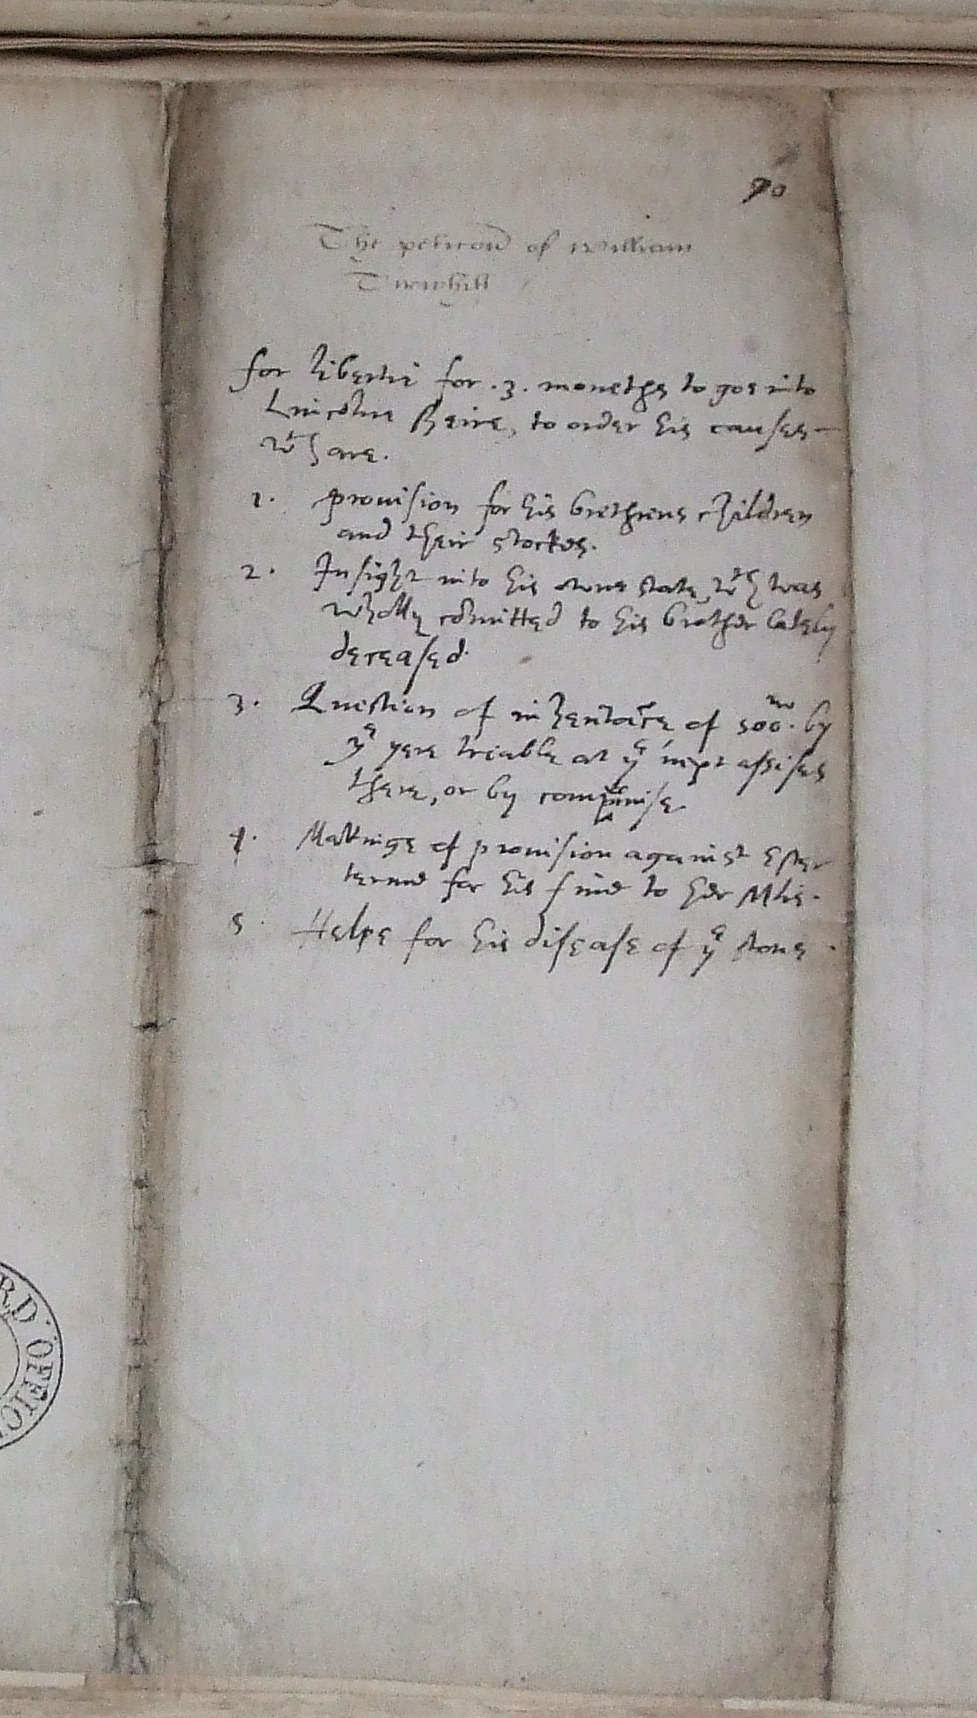 90
The peticon of William
Tirwhill
for libertie for .3. monethes to goe into
Lincolne sheire, to order his causes
wch are.
1. provision for his brethrens children
and their stockes.
2. Insight into his owne state, wch was
wholly comitted to his brother lately
deceased.
3. Question of inheritace of 500. by
ye yere triable at ye next assises
there, or by compmise.
4. Makinge of provision against Ester
terme for his fine to her Matie.
5. Helpe for his disease of ye stone.
RD OFFIC